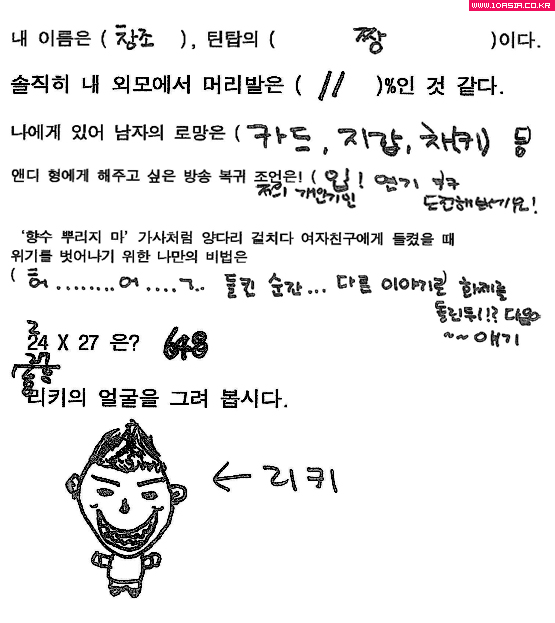 WWW.10ASIA.CO.KR
내 이름은 ( 창조 ), 틴탑의 ( 짱 )이다.
솔직히 내 외모에서 머리발은 ( // )%인 것 같다.
나에게 있어 남자의 로망은 ( 카드, 지갑, 차(키) 등
앤디 형에게 해주고 싶은 방송 복귀 조언은! ( 입! 연기
저의 개인기인
도전해보시기요!
‘향수 뿌리지 마’ 가사처럼 양다리 걸치다 여자친구에게 들켰을 때
위기를 벗어나기 위한 나만의 비법은
( 허........어....그.. 들킨 순간... 다른 이야기로 화제를
돌린뒤!? 다음
~~ 얘기
24 X 27 은? 648
리키의 얼굴을 그려 봅시다.
← 리키